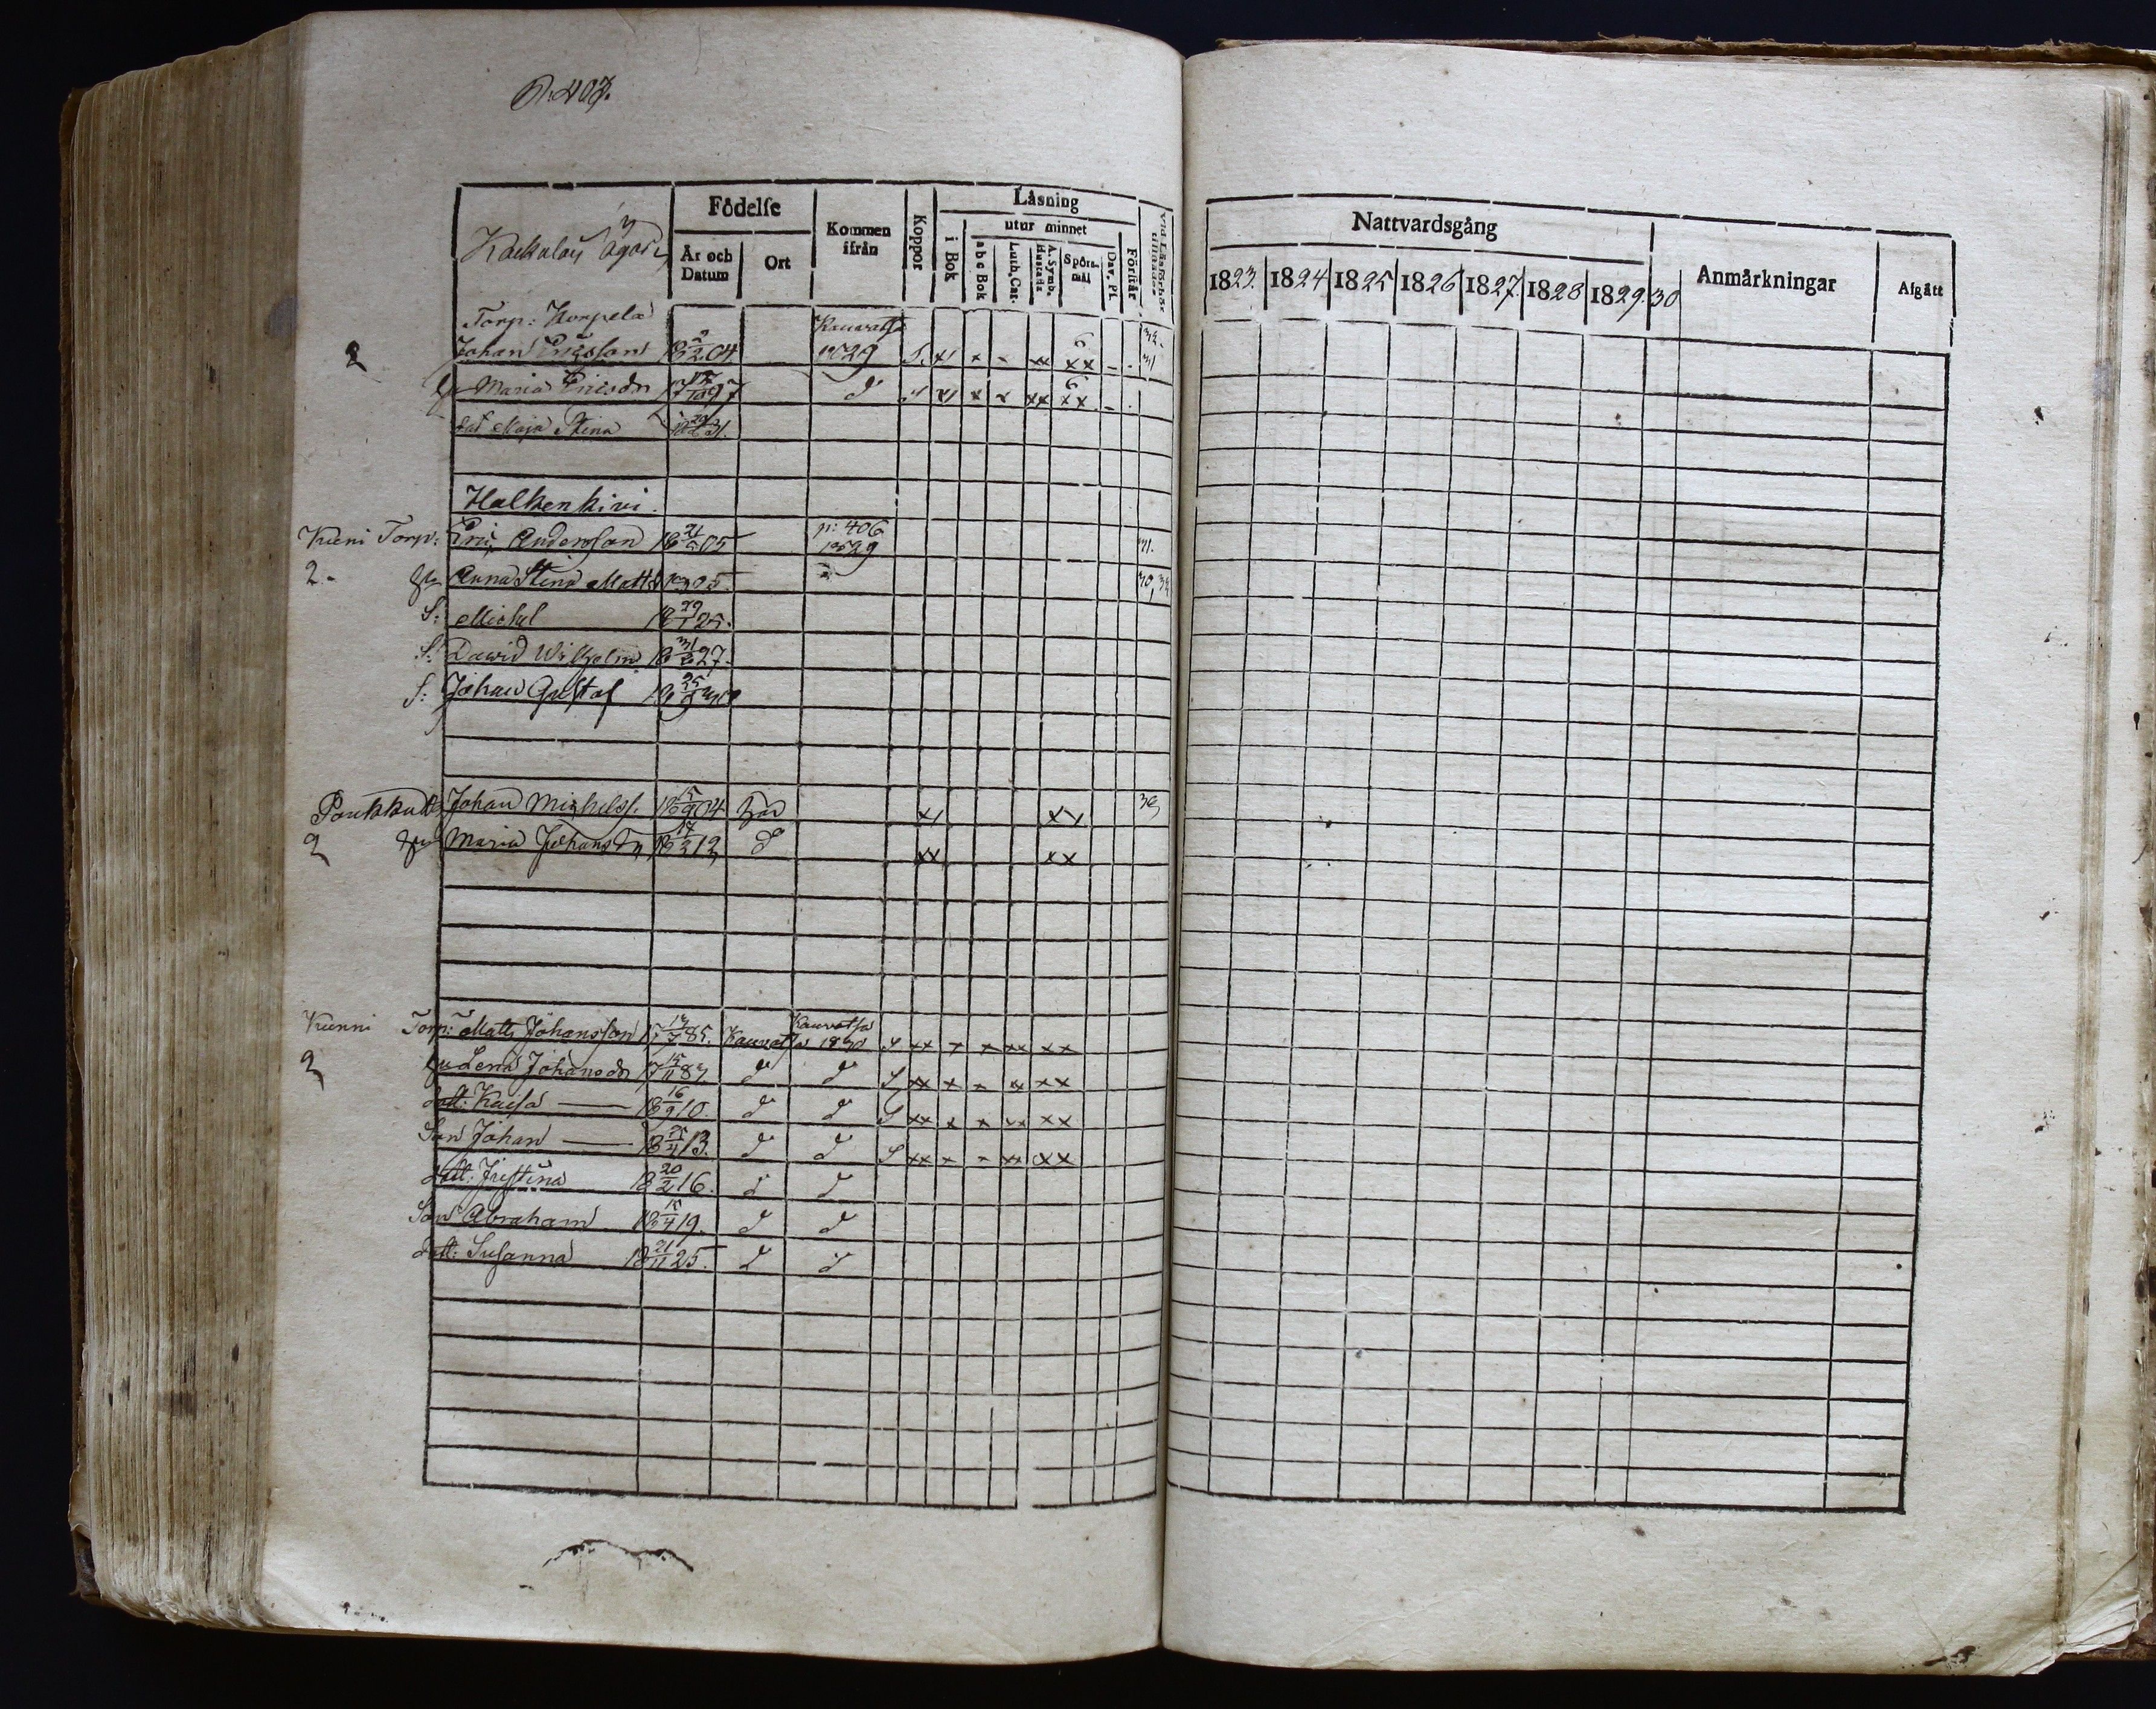 P. 407.
Födelse Kommen ifrån Koppor Läsning
År och Datum Ort i Bok utur minnet
a b c Bok Luth. Cat. A. Symb. Hustafla Spörsmål Dav. Ps. Förstår
Nattvardsgång Anmärkningar Afgått
1823. 1824 1825 1826 1827. 1828 1829. 30
Torp: Korpela Kauvatsa
2 Johan Ericsson 18 2/2 04 1829 S. x x x 6 xx 32. 31
hu Maria Ericsdr 97 d x x xx 6 xx
dot Maja Stina 31.
Halkenkivi.
Torp: Eric Andersson 18 21/5 05 p: 406 1829 31.
2. hu Anna Stina Matts 05 30, 32
S: Michel 18 29/1 25.
S: David Wilhelm 18 31/2 27.
S: Johan Gustaf 18 25/9 30
Johan Michelss. 18 15/9 04 32
2 hu Maria Johansdr 18 17/2 12 d xx xx
Kunni Torp: Matts Johansson 17 13/7 85. Kauvatsa Kauvatsa 1830 S xx x x xx xx
2 hu Lena Johansdr 17 15/11 87. d d S xx x x xx xx
dott: Kaisa — 18 16/9 10. d d S xx x x xx xx
Son Johan — 18 25/4 13. d d S xx x x xx xx
dott: Justina 18 20/2 16. d d
Son Abraham 18 15/4 19. d d
dott: Susanna 18 21/11 25. d d